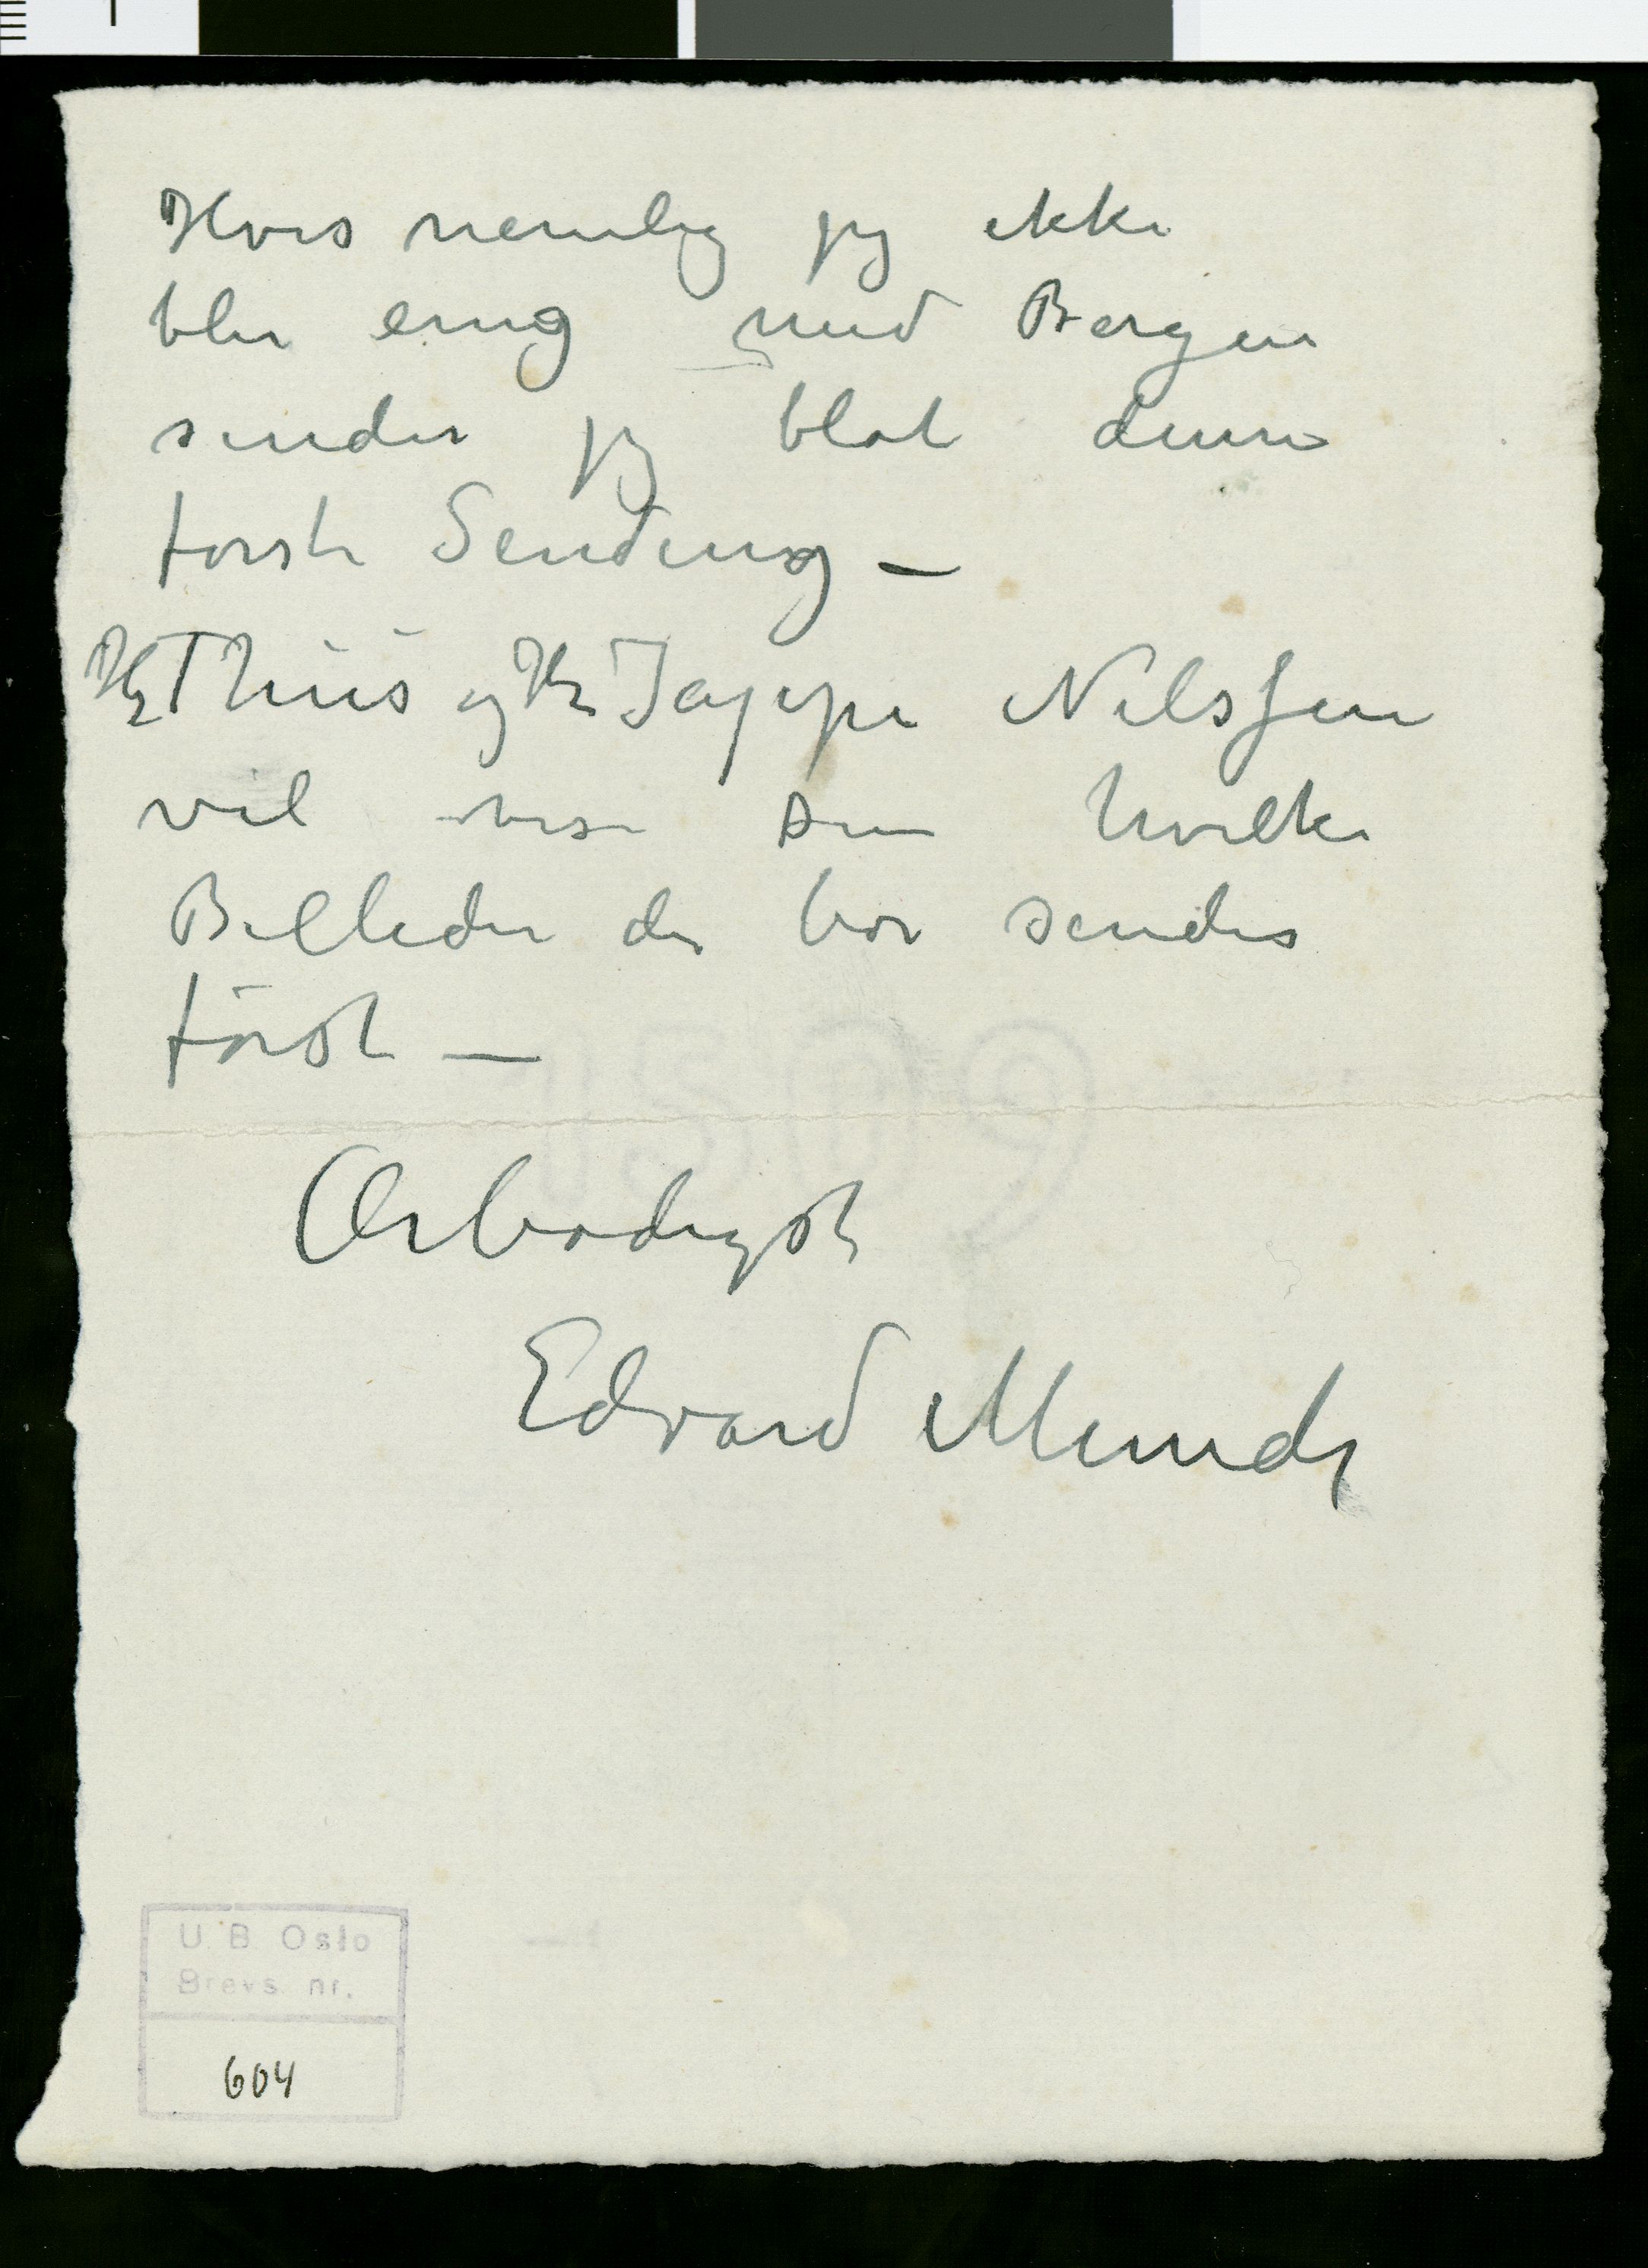 Hvis nemlig jeg ikke
blir enig med Bergen
sender jeg blot denne
første Sending –
Hr Thiis og Hr Jappe Nilssen
vil vise Dem hvilke
Billeder der bør sendes
først –
Ærbødigst
Edvard Munch
U.B. Oslo
Brevs. nr.
604